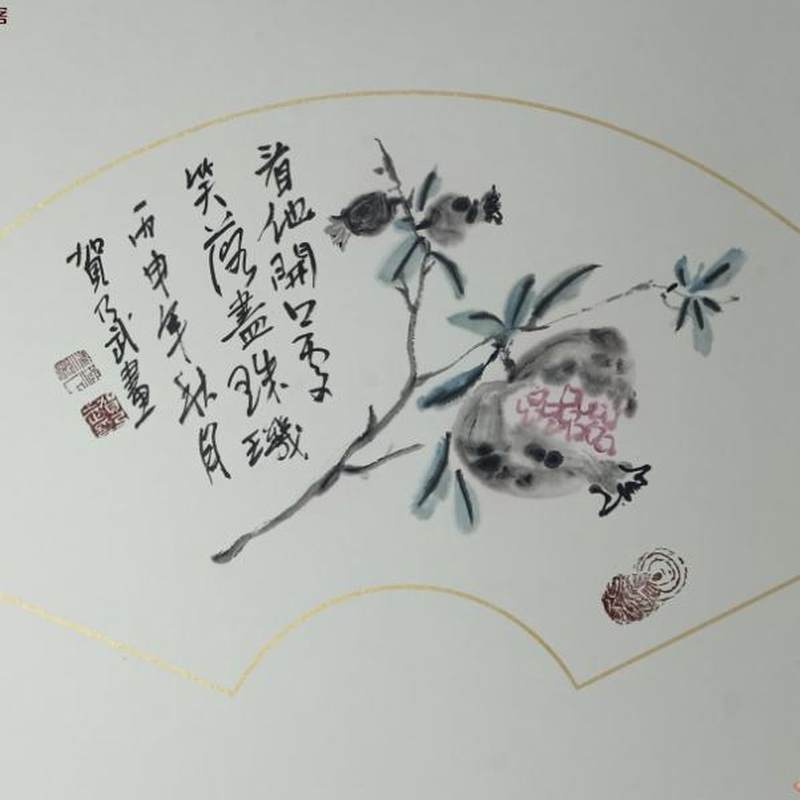 看他開口處
笑落盡珠璣
丙申年秋月
賀乃武畫